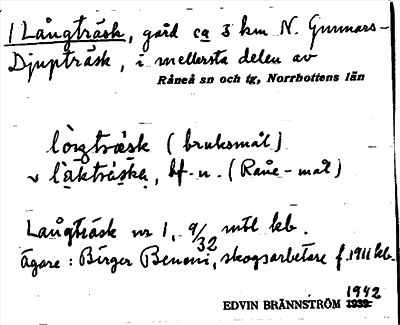 1 Långträsk, gård ca 3 km N. Gunnars-
Djupträsk, i mellersta delen av
Råneå sn och tg, Norrbottens län
lòŋgträsk (bruksmål)
v lákträska, bf. n. (Råne-mål)
Långträsk nr 1, 9/32 mtl kb.
Ägare: Birger Benoni, skogsarbetare f. 1911 kb.
1942
EDVIN BRÄNNSTRÖM 1939.